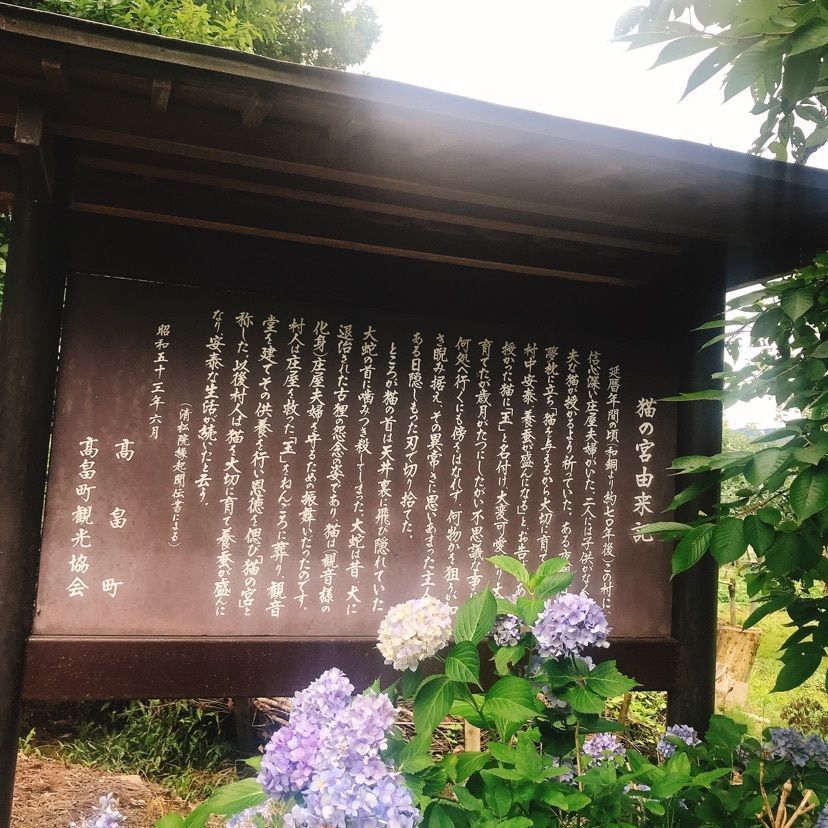 猫の宮由来記
延暦年間の頃(和銅より約七〇年後)この村に
信心深い庄屋夫婦がいた。二人には子供がな
夫な猫が授かるよう祈っていた。ある夜
夢枕に立つ「猫を与えるから大切に育て
村中安泰、養蚕が盛んになる」とお告
授かった猫に「玉」と名付け、大変可愛
育てたが歳月がたつにしたがい不思議な事
何処へ行くにも傍をはなれず、何物かを狙うが如
き睨み据え、その異常さに思いあまった主人
ある日隠しもった刃で切り捨てた。
ところが猫の首は天井裏に飛び隠れていた
大蛇の首に噛みつき殺してしまった。大蛇は昔、犬に
退治された古狸の怨念の姿であり、猫は(観音様の
化身)庄屋夫婦を守るための振舞いだったのです。
村人は庄屋を救った「玉」をねんごろに葬り、観音
堂を建てその供養を行い恩徳を偲び「猫の宮」と
称した。以後村人は猫を大切に育て養蚕が盛んに
なり、安泰な生活が続いたと云う。
(清松院縁起聞伝書による)
昭和五十三年六月
高畠町
高畠町観光協会